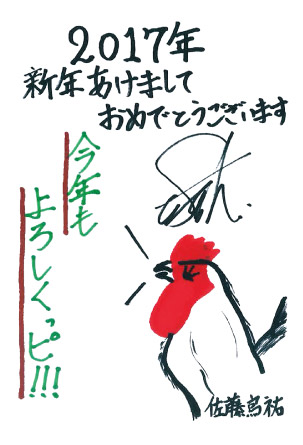 2017年
新年あけまして
おめでとうございます
今年も
よろしくっピ!!!
佐藤鳥祐